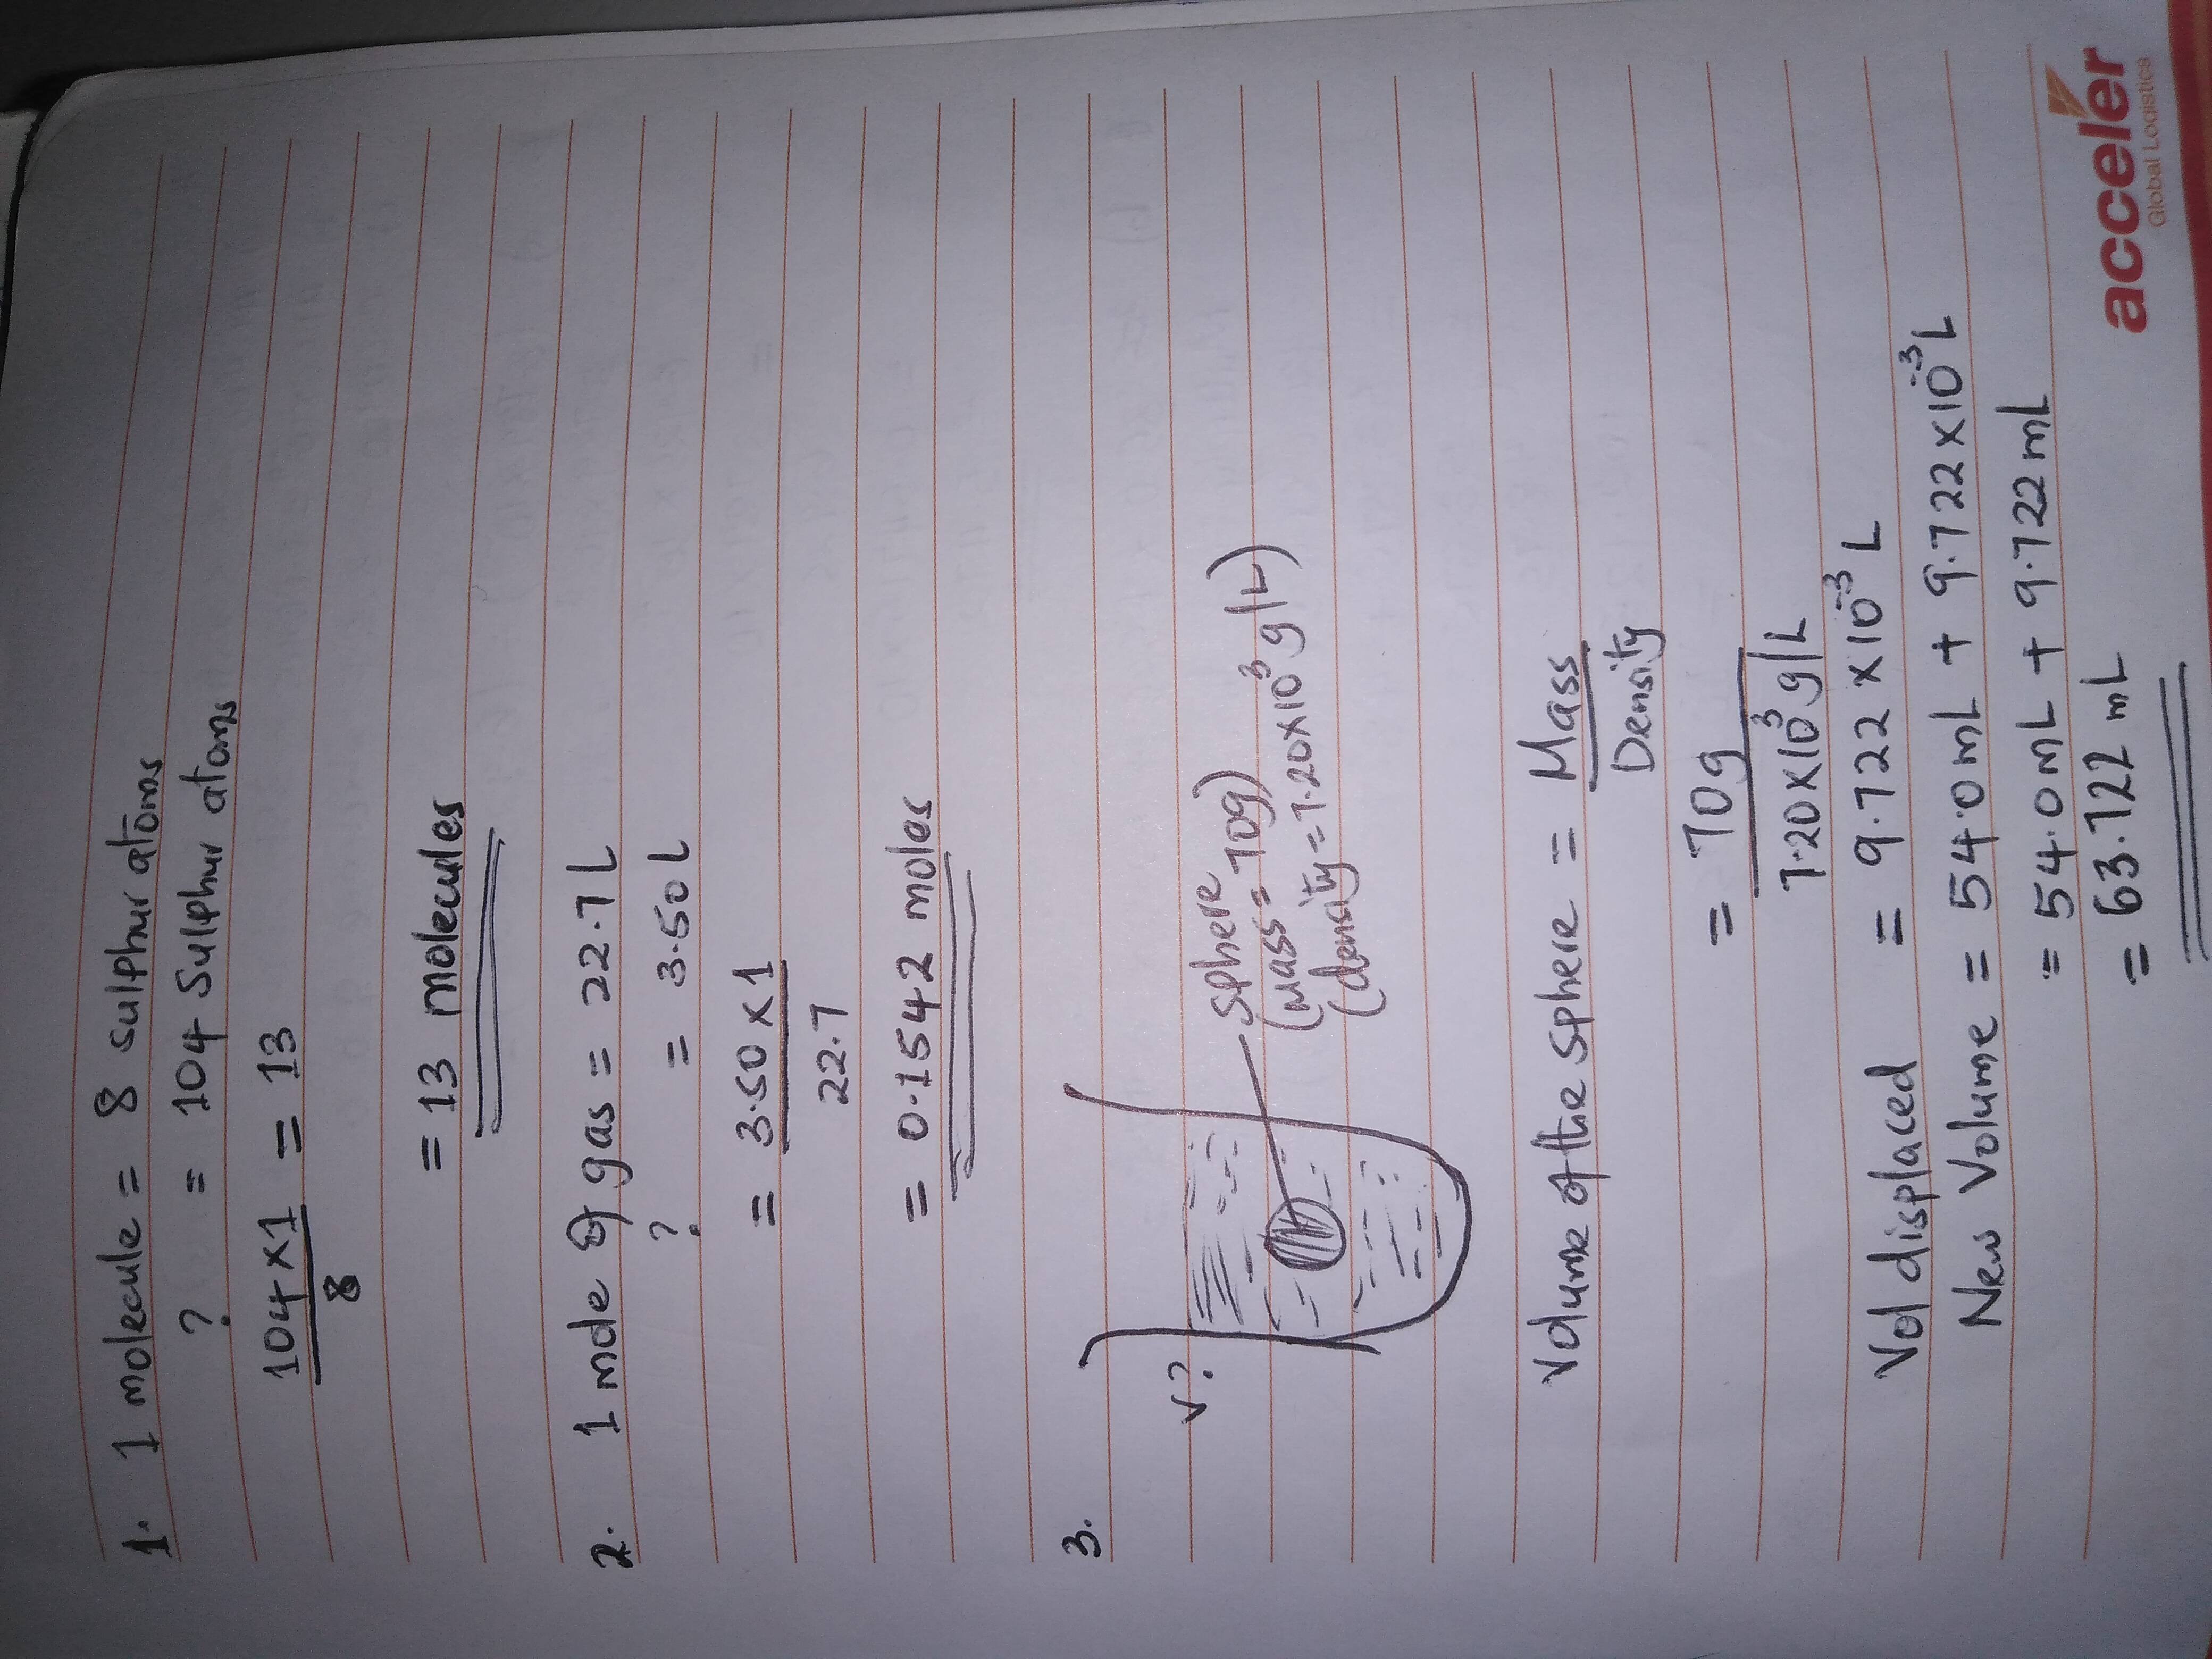 1. 1 molecule = 8 sulphur atoms
? = 104 Sulphur atoms
104 x 1 = 13
8
= 13 molecules
2. 1 mole of gas = 22.7 L
? = 3.50 L
= 3.50 x 1
22.7
= 0.1542 moles
3.
V?
Sphere
(mass = 70g)
(density = 7.20 x 10³ g/L)
Volume of the sphere = Mass
Density
= 70g
7.20 x 10³ g/L
Vol displaced = 9.722 x 10⁻³ L
New Volume = 54.0 mL + 9.722 x 10⁻³ L
= 54.0 mL + 9.722 mL
= 63.722 mL
acceler
Global Logistics